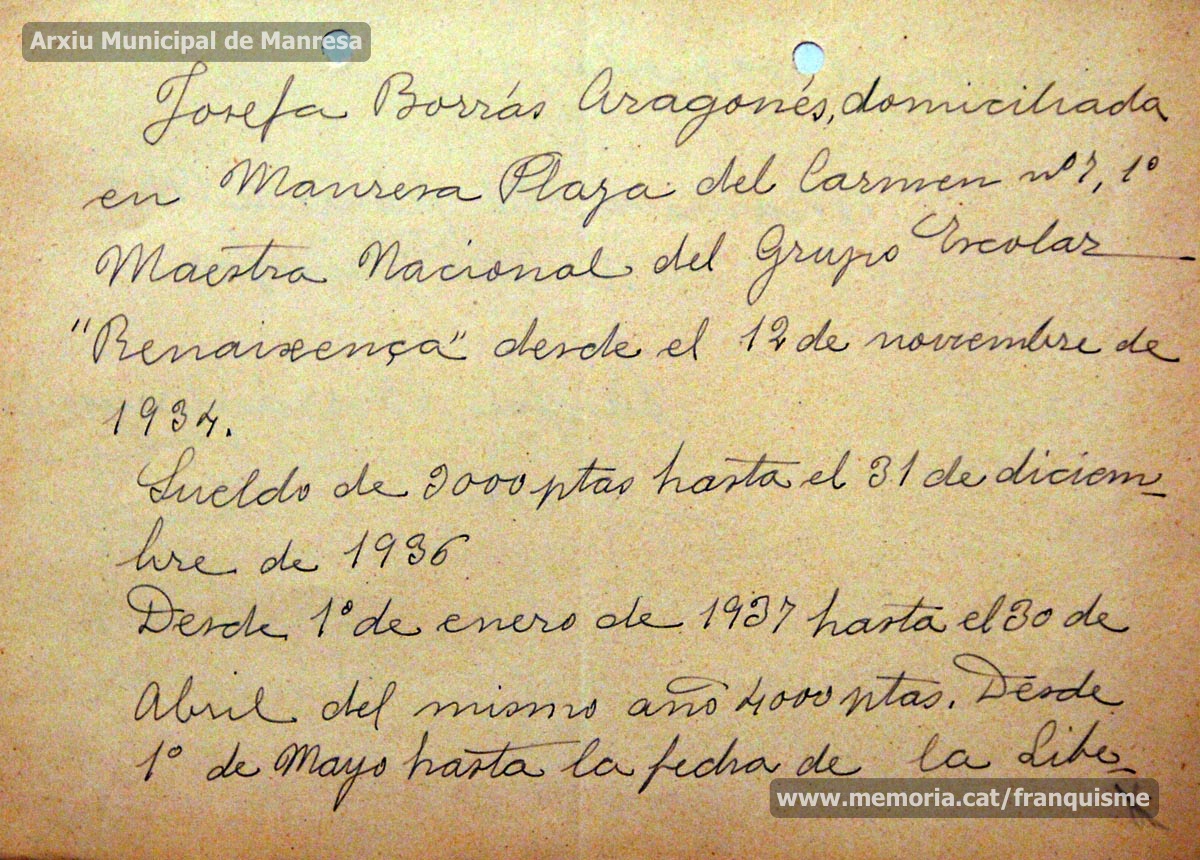 Arxiu Municipal de Manresa
Josefa Borrás Aragonés, domiciliada
en Manresa Plaza del Carmen nº 7, 1º
Maestra Nacional del Grupo Escolar
"Renaixença" desde el 12 de noviembre de
1934.
Sueldo de 3000 ptas hasta el 31 de diciem-
bre de 1936
Desde 1º de enero de 1937 hasta el 30 de
Abril del mismo año 4000 ptas. Desde
1º de Mayo hasta la fecha de la Libe-
www.memoria.cat/franquisme